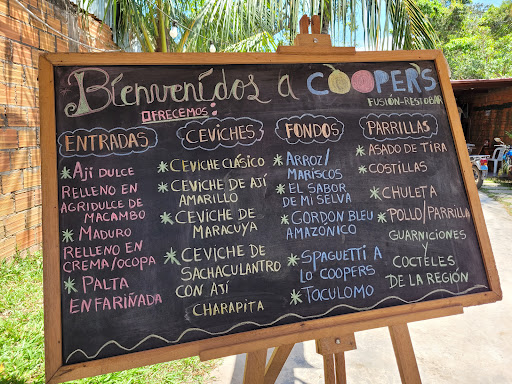 Bienvenidos a COOPER'S
FUSIÓN-RESTOBAR
OFRECEMOS:
ENTRADAS
* AJÍ DULCE
RELLENO EN
AGRIDULCE DE
MACAMBO
* MADURO
RELLENO EN
CREMA/OCOPA
* PALTA
ENFARIÑADA
CEVICHES
* CEVICHE CLÁSICO
* CEVICHE DE AJÍ
AMARILLO
* CEVICHE DE
MARACUYA
* CEVICHE DE
SACHACULANTRO
CON AJÍ
CHARAPITA
FONDOS
* ARROZ/
MARISCOS
* EL SABOR
DE MI SELVA
* GORDON BLEU
AMAZÓNICO
* SPAGUETTI A
LO COOPERS
* TOCULOMO
PARRILLAS
* ASADO DE TIRA
* COSTILLAS
* CHULETA
* POLLO/PARRILLA
GUARNICIONES
Y
COCTELES
DE LA REGIÓN